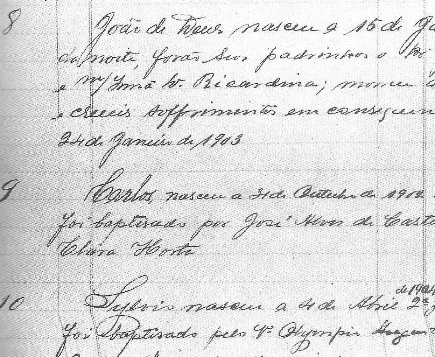 8 João de Deus nasceu a 15 de Ja
da noite, forão seus padrinhos o
e m/ Irmã D. Ricardina; morreu
e crueis soffrimentos em consequen
24 de Janeiro de 1903
9 Carlos, nasceu a 31 de Outubro de 1902
foi baptisado por José Alves de Casto
Clara Horta
de 1904
10 Sylvio nasceu a 4 de Abril 2ª
foi baptisado pelo Pe Olympio